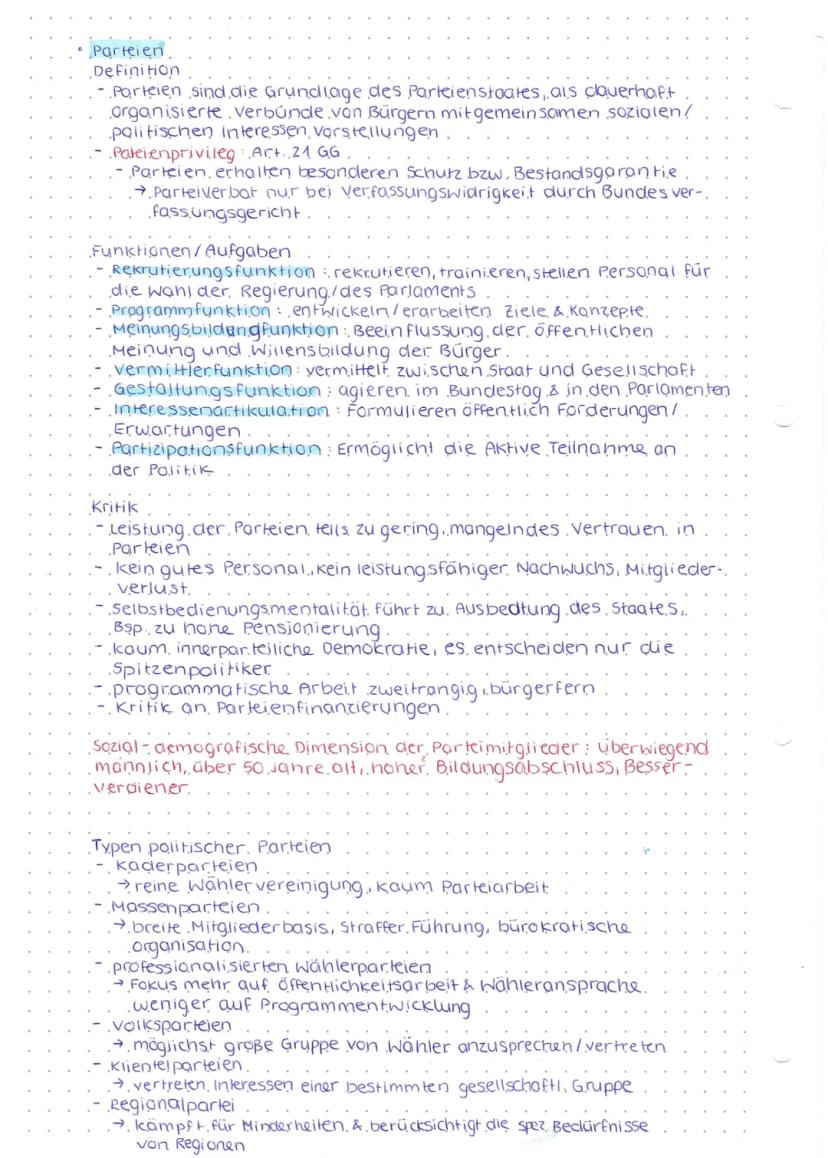 • Parteien
Definition
- Parteien sind die Grundlage des Parteienstaates, als dauerhaft
organisierte Verbünde von Bürgern mit gemeinsamen sozialen/
politischen Interessen, Vorstellungen
- Pateienprivileg: Art. 21 GG
- Parteien erhalten besonderen Schutz bzw. Bestandsgarantie
→ Parteiverbot nur bei Verfassungswidrigkeit durch Bundesver-
fassungsgericht
Funktionen/Aufgaben
- Rekrutierungsfunktion: rekrutieren, trainieren, stellen Personal für
die Wahl der Regierung/des Parlaments
- Programmfunktion: entwickeln/erarbeiten Ziele & Konzepte
- Meinungsbildungfunktion: Beeinflussung der öffentlichen
Meinung und Willensbildung der Bürger
- Vermittlerfunktion: vermittelt zwischen Staat und Gesellschaft
- Gestaltungsfunktion: agieren im Bundestag & in den Parlamenten
- Interessenartikulation: Formulieren öffentlich Forderungen/
Erwartungen
- Partizipationsfunktion: Ermöglicht die Aktive Teilnahme an
der Politik
Kritik
- Leistung der Parteien teils zu gering, mangelndes Vertrauen in
Parteien
- kein gutes Personal, kein leistungsfähiger Nachwuchs, Mitglieder-
verlust
- Selbstbedienungsmentalität führt zu Ausbedtung des Staates,
Bsp. zu hohe Pensionierung
- kaum innerparteiliche Demokratie, es entscheiden nur die
Spitzenpolitiker
- programmatische Arbeit zweitrangig, bürgerfern
- Kritik an Parteienfinanzierungen
Sozial-demografische Dimension der Parteimitglieder: überwiegend
männlich, über 50 Jahre alt, hoher Bildungsabschluss, Besser-
verdiener
Typen politischer Parteien
- Kaderparteien
→ reine Wählervereinigung, kaum Parteiarbeit
- Massenparteien
→ breite Mitgliederbasis, straffer Führung, bürokratische
organisation
- professionalisierten Wählerparteien
→ Fokus mehr auf Öffentlichkeitsarbeit & Wähleransprache
weniger auf Programmentwicklung
- Volksparteien
→ möglichst große Gruppe von Wähler anzusprechen/vertreten
- Klientelparteien
→ vertreten Interessen einer bestimmten gesellschaftl. Gruppe
- Regionalpartei
→ kämpft für Minderheiten & berücksichtigt die spez. Bedürfnisse
von Regionen